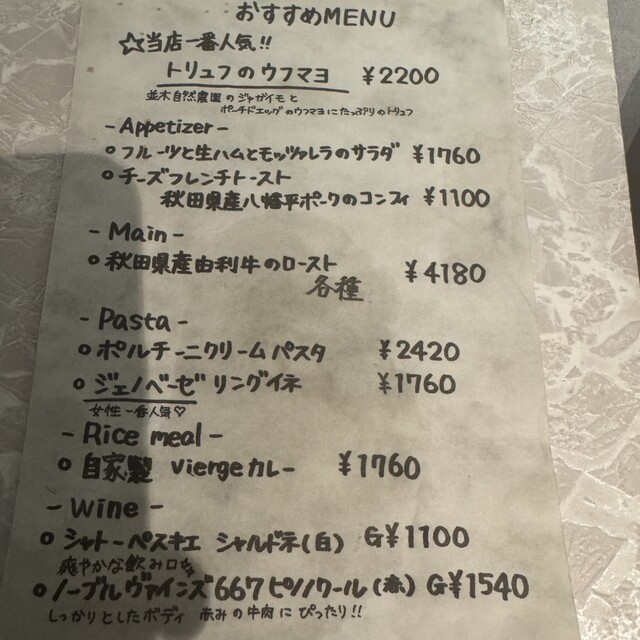 おすすめMENU
☆当店一番人気!!
トリュフのウフマヨ ¥2200
並木自然農園のジャガイモと
ポーチドエッグのウフマヨにたっぷりのトリュフ
- Appetizer -
○フルーツと生ハムとモッツァレラのサラダ ¥1760
○チーズフレンチトースト
秋田県産八幡平ポークのコンフィ ¥1100
- Main -
○秋田県産由利牛のロースト ¥4180
各種
- Pasta -
○ポルチーニクリームパスタ ¥2420
○ジェノベーゼリングイネ ¥1760
女性一番人気♡
- Rice meal -
○自家製 viergeカレー ¥1760
- wine -
○シャトーペスキエ シャルドネ(白) G¥1100
爽やかな飲み口
○ノーブルヴァインズ667ピノノワール(赤) G¥1540
しっかりとしたボディ 赤みの牛肉にぴったり!!